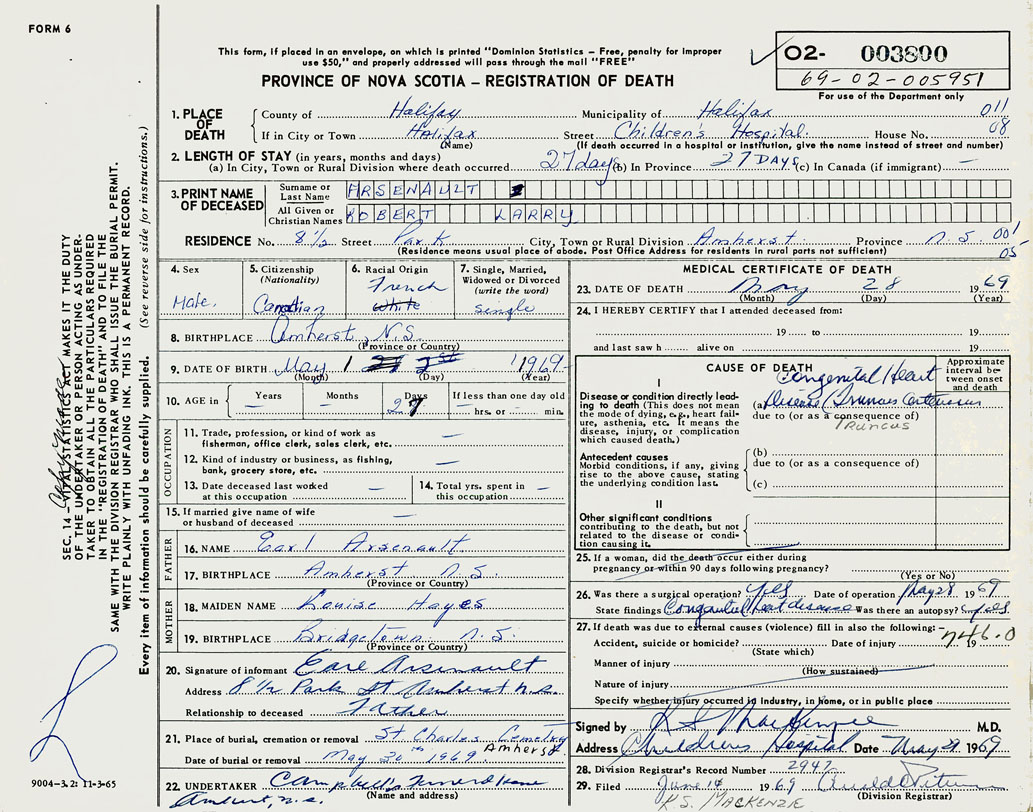 FORM 6
This form, if placed in an envelope, on which is printed "Dominion Statistics – Free, penalty for improper
use $50," and properly addressed will pass through the mail "FREE"
PROVINCE OF NOVA SCOTIA – REGISTRATION OF DEATH
02- 003800
69-02-005951
For use of the Department only
1. PLACE OF DEATH
County of Halifax Municipality of Halifax 011
If in City or Town Halifax Street Children's Hospital House No. 08
(Name) (If death occurred in a hospital or institution, give the name instead of street and number)
2. LENGTH OF STAY (in years, months and days)
(a) In City, Town or Rural Division where death occurred 27 days (b) In Province 27 DAYS (c) In Canada (if immigrant) —
3. PRINT NAME OF DECEASED
Surname or Last Name ARSENAULT
All Given or Christian Names ROBERT LARRY
RESIDENCE No. 8½ Street Park City, Town or Rural Division Amherst Province N.S. 001
05
(Residence means usual place of abode. Post Office Address for residents in rural parts not sufficient)
4. Sex
Male.
5. Citizenship
(Nationality)
Canadian
6. Racial Origin
French
White
7. Single, Married,
Widowed or Divorced
(write the word)
single
8. BIRTHPLACE Amherst, N.S.
(Province or Country)
9. DATE OF BIRTH May 1 1969
(Month) (Day) (Year)
10. AGE in
Years —
Months —
Days 27
If less than one day old
— hrs. or — min.
OCCUPATION
11. Trade, profession, or kind of work as
fisherman, office clerk, sales clerk, etc. —
12. Kind of industry or business, as fishing,
bank, grocery store, etc. —
13. Date deceased last worked
at this occupation —
14. Total yrs. spent in
this occupation —
15. If married give name of wife
or husband of deceased —
FATHER
16. NAME Earl Arsenault
17. BIRTHPLACE Amherst N.S.
(Province or Country)
MOTHER
18. MAIDEN NAME Louise Hayes
19. BIRTHPLACE Bridgetown N.S.
(Province or Country)
20. Signature of informant Earl Arsenault
Address 8½ Park St Amherst N.S.
Relationship to deceased Father
21. Place of burial, cremation or removal St Charles Cemetry
Amherst
Date of burial or removal May 30th 1969
22. UNDERTAKER Campbell's Funeral Home
(Name and address)
Amherst, N.S.
MEDICAL CERTIFICATE OF DEATH
23. DATE OF DEATH May 28 1969
(Month) (Day) (Year)
24. I HEREBY CERTIFY that I attended deceased from:
19 to 19
and last saw h alive on 19
CAUSE OF DEATH
Approximate
interval be-
tween onset
and death
I
Congenital Heart
Disease or condition directly lead-
ing to death (This does not
mean the mode of dying, e.g., heart fail-
ure, asthenia, etc. It means the
disease, injury, or complication
which caused death.)
(a) Disease (Truncus Arteriosus
due to (or as a consequence of)
TRUNCUS
Antecedent causes
Morbid conditions, if any, giving
rise to the above cause, stating
the underlying condition last.
(b)
due to (or as a consequence of)
(c)
II
Other significant conditions
contributing to the death, but not
related to the disease or condi-
tion causing it.
25. If a woman, did the death occur either during
pregnancy or within 90 days following pregnancy?
(Yes or No)
26. Was there a surgical operation? yes Date of operation May 28 1969
State findings Congenital heart disease Was there an autopsy? yes
27. If death was due to external causes (violence) fill in also the following:–
746.0
Accident, suicide or homicide? Date of injury 19
(State which)
Manner of injury
(How sustained)
Nature of injury
Specify whether injury occurred in Industry, in home, or in public place
Signed by K S MacKenzie M.D.
Address Childrens Hospital Date May 29 1969
28. Division Registrar's Record Number 2947
29. Filed June 14 1969
(Division Registrar)
K.S. MACKENZIE
SEC. 14 – VITAL STATISTICS ACT MAKES IT THE DUTY
OF THE UNDERTAKER OR PERSON ACTING AS UNDER-
TAKER TO OBTAIN ALL THE PARTICULARS REQUIRED
IN THE "REGISTRATION OF DEATH" AND TO FILE THE
SAME WITH THE DIVISION REGISTRAR WHO SHALL ISSUE THE BURIAL PERMIT.
WRITE PLAINLY WITH UNFADING INK. THIS IS A PERMANENT RECORD.
Every item of information should be carefully supplied. (See reverse side for instructions.)
9004-3.2: 11-3-65